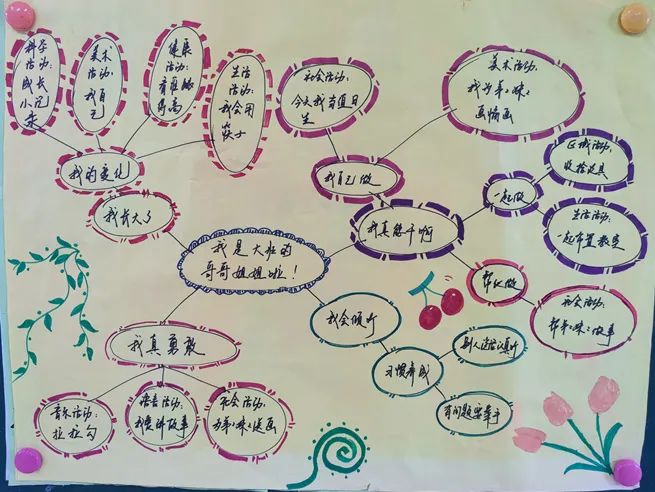 科学
活动:
成长
小记
录
美术
活动:
我自
己
健康
活动:
看谁做
得高
生活
活动:
我会用
筷子
社会活动:
今天我当值日
生
美术活动:
我为弟弟妹妹
画幅画
我的变化
我长大了
我自己做
一起做
区域活动:
收拾玩具
我真能干啊
生活活动:
一起布置教室
我是大班的
哥哥姐姐啦!
帮忙做
社会活动:
帮弟弟妹妹做事
我会倾听
我真勇敢
习惯养成
别人说话认真听
有问题要举手
音乐活动:
拉拉勾
语言活动:
我要讲故事
社会活动:
为弟弟妹妹送画